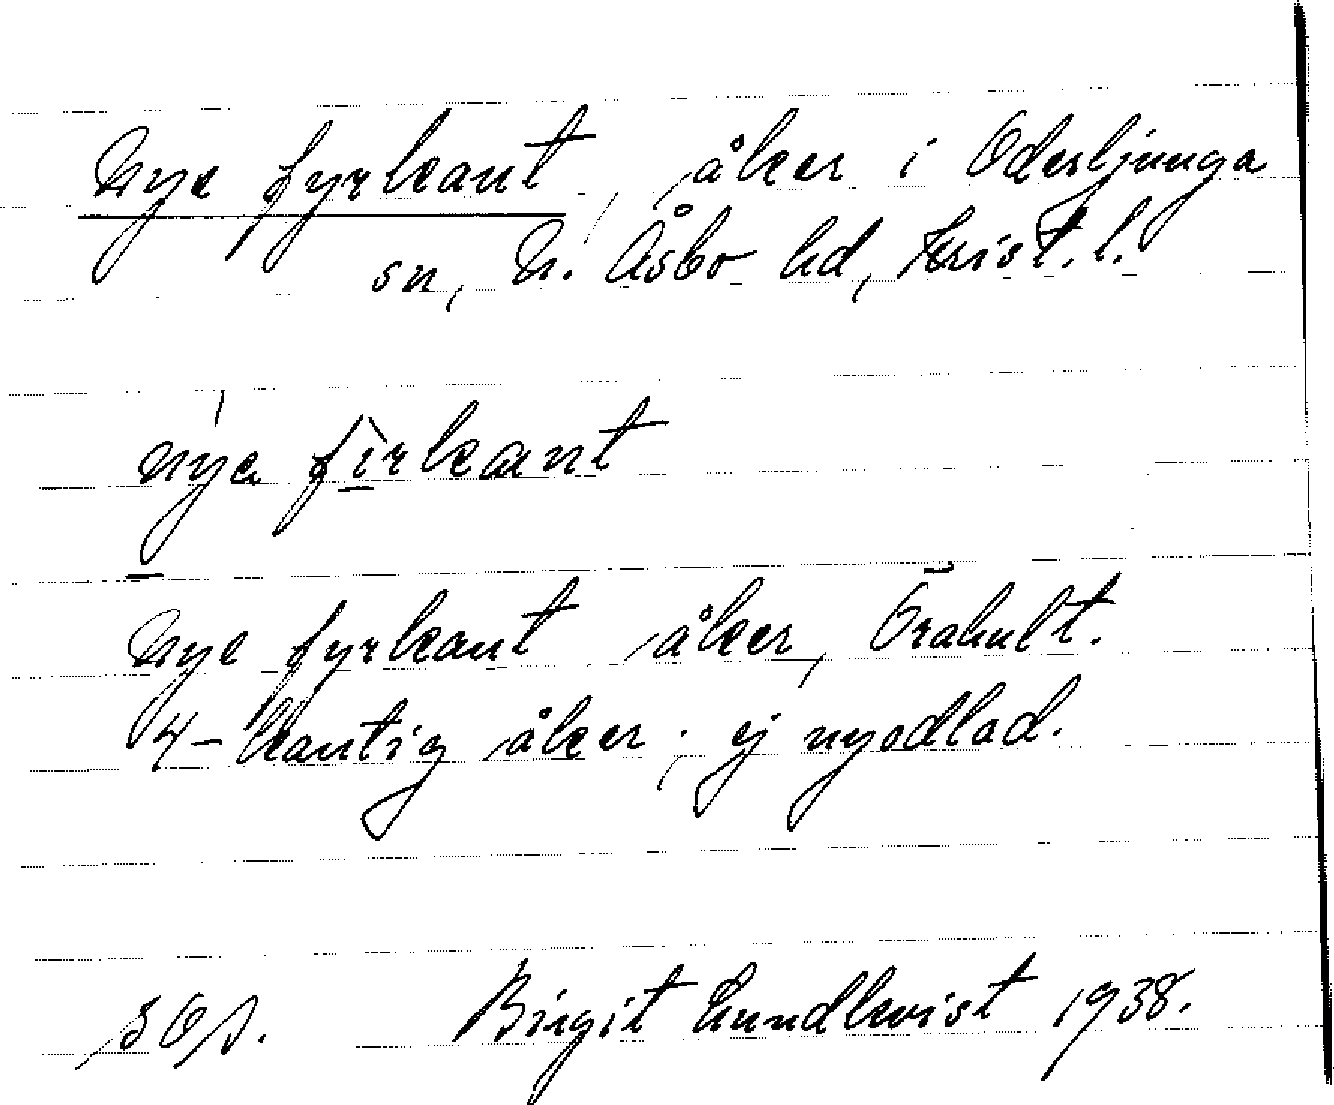 Nye fyrkant, åker i Oderljunga
sn, N. Åsbo hd, Krist. l.
nyа firkant
Nye fyrkant åker, Örahult.
4-kantig åker; ej nyodlad.
Birgit Lundkvist 1938.